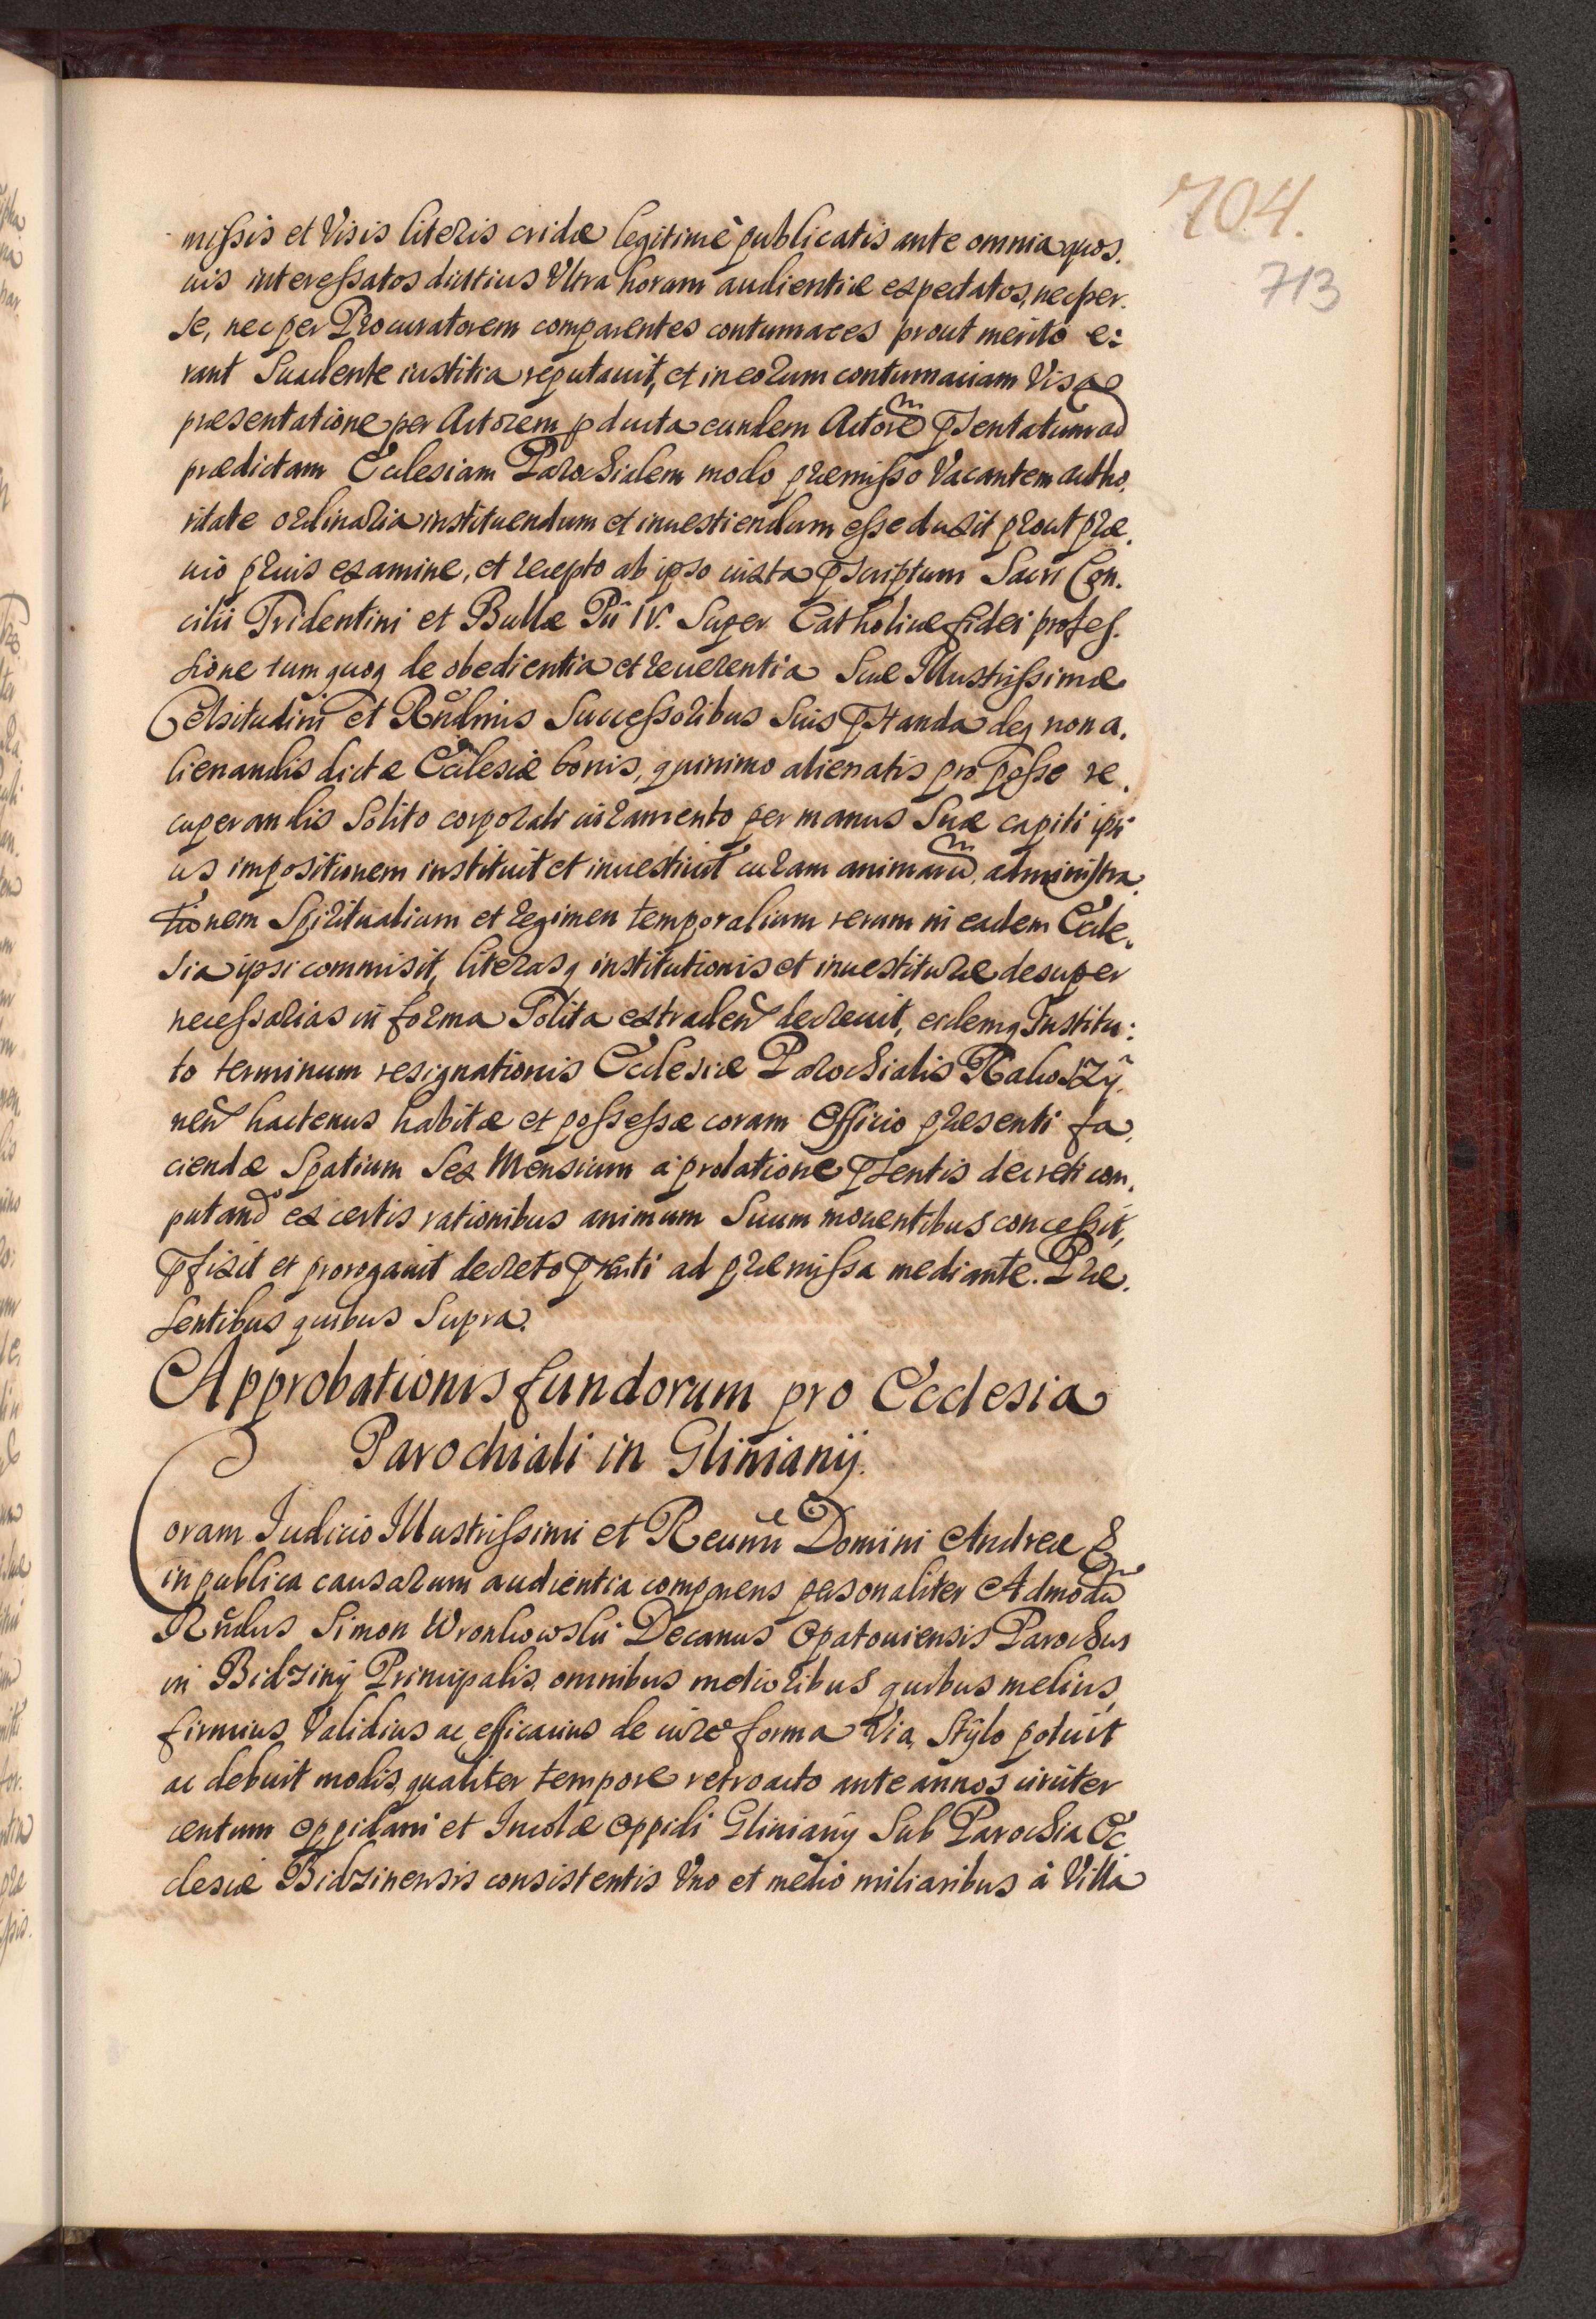 704.
713
missis et Visis literis cridæ legitimè publicatis ante omnia quos.
uis interessatos diutius Ultra horam audientiæ expectatos, nec per.
se, nec per Procuratorem comparentes contumaces prout meritò e:
rant Suadente iustitia reputauit, et in eorum contumaciam Visa
præsentatione per Actorem pducta eundem Actorē pſentatum ad
prædictam Ecclesiam Parochialem modo præmisso Vacantem autho.
ritate ordinaria instituendum et inuestiendum esse duxit prout præ.
uio prius examine, et recepto ab ipso iuxta pſcriptum Sacri Con.
cilii Tridentini et Bullæ Pii IV. Super Catholicæ fidei profes.
sione tum quoq de obedientia et reuerentia Suæ Illustrissimæ
Celsitudini et Rndmis Successoribus Suis pſtanda deq non a.
lienandis dictæ Ecclesiæ bonis, quinimo alienatis pro posse re.
cuperandis Solito corporali iuramento per manus Suæ capiti ipsi
us impositionem instituit et inuestiuit curam animarū, administra.
tionem Spiritualium et regimen temporalium rerum in eadem Eccle.
sia ipsi commisit, literasq institutionis et inuestituræ desuper
necessarias in forma Solita extraden decreuit, eidemq Institu:
to terminum resignationis Ecclesiæ Parochialis
nen hactenus habitæ et possessæ coram Officio præsenti fa.
ciendæ Spatium Sex Mensium a prolatione pſentis decreti com.
putand ex certis rationibus animum Suum mouentibus concessit,
pfixit et prorogauit decreto pſenti ad præmissa mediante. Præ.
sentibus quibus Supra.
Approbationis fundorum pro Ecclesia
Parochiali in Glinianÿ.
Coram Judicio Illustrissimi et Reuñi Domini Andreæ &
in publica causarum audientia comparens personaliter Admodū
Rndus Simon Wronkowski Decanus Opatouiensis Parochus
in Bidzinÿ Principalis omnibus melioribus quibus melius,
firmius Validius ac efficacius de iure forma Via, Stÿlo potuit
ac debuit modis, qualiter tempore retroacto ante annos circiter
centum oppidani et Incolæ oppidi Glinianÿ Sub Parochia Ec
clesiæ Bidzinensis consistentis Uno et medio miliaribus à Villa